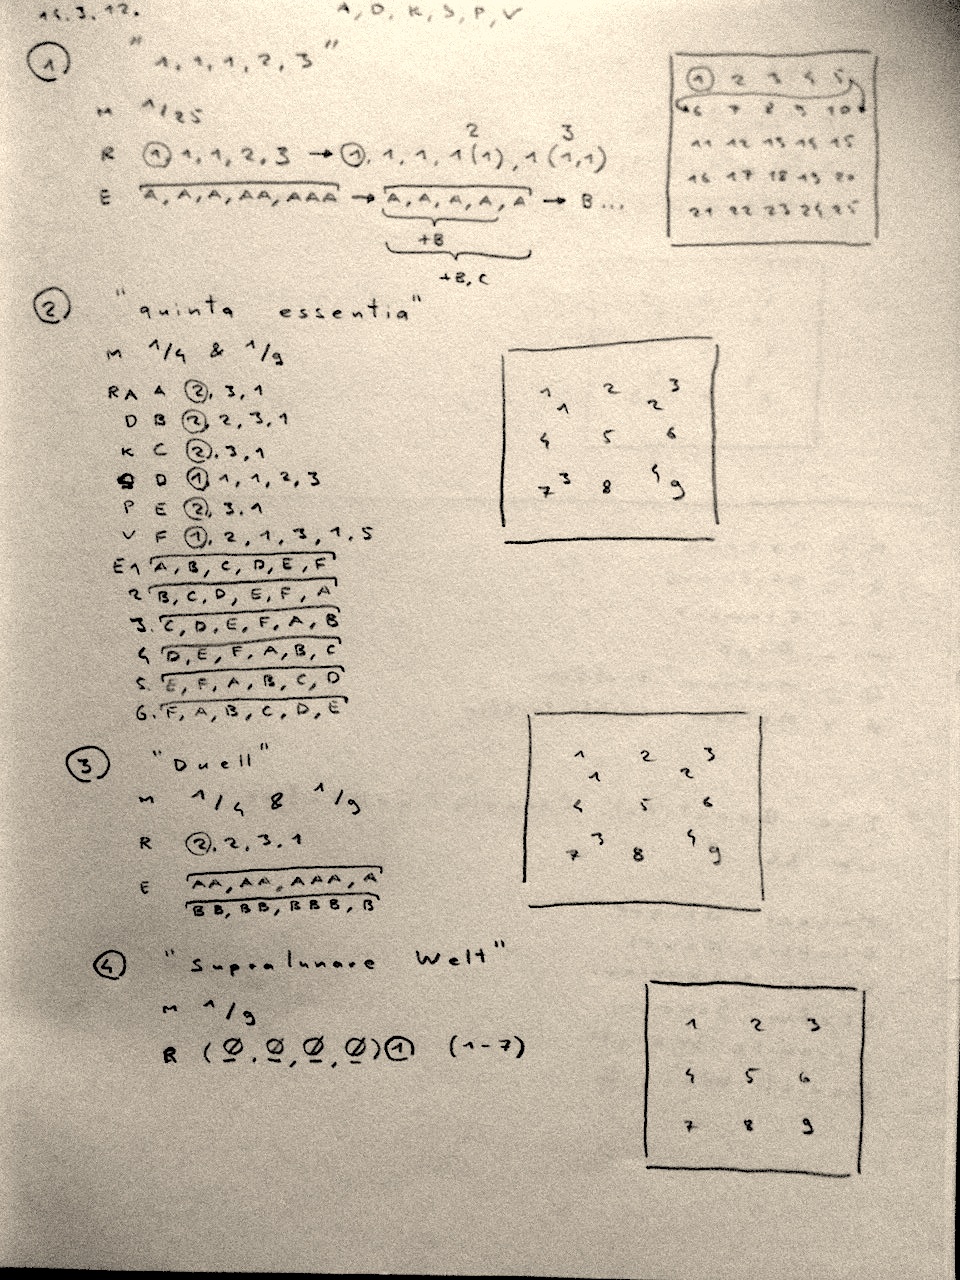 A, D, K, S, P, V
1 "1, 1, 1, 2, 3"
M 1/25
R 1, 1, 1, 2, 3 → 1, 1, 1, 1(1), 1(1,1)
2 3
E A, A, A, AA, AAA → A, A, A, A, A → B...
+B
+B, C
1 2 3 4 5
6 7 8 9 10
11 12 13 14 15
16 17 18 19 20
21 22 23 24 25
2 "quinta essentia"
M 1/4 & 1/9
R A A 2, 3, 1
D B 2, 2, 3, 1
K C 2, 3, 1
S D 1, 1, 1, 2, 3
P E 2, 3, 1
V F 1, 2, 1, 3, 1, 5
E 1 A, B, C, D, E, F
2 B, C, D, E, F, A
3. C, D, E, F, A, B
4 D, E, F, A, B, C
5. E, F, A, B, C, D
6. F, A, B, C, D, E
1 2 3
1 2
4 5 6
3 4
7 8 9
3 "Duell"
M 1/4 & 1/9
R 2, 2, 3, 1
E AA, AA, AAA, A
BB, BB, BBB, B
1 2 3
1 2
4 5 6
3 4
7 8 9
4 "Supralunare Welt"
M 1/9
R (Ø, Ø, Ø, Ø) 1 (1-7)
1 2 3
4 5 6
7 8 9